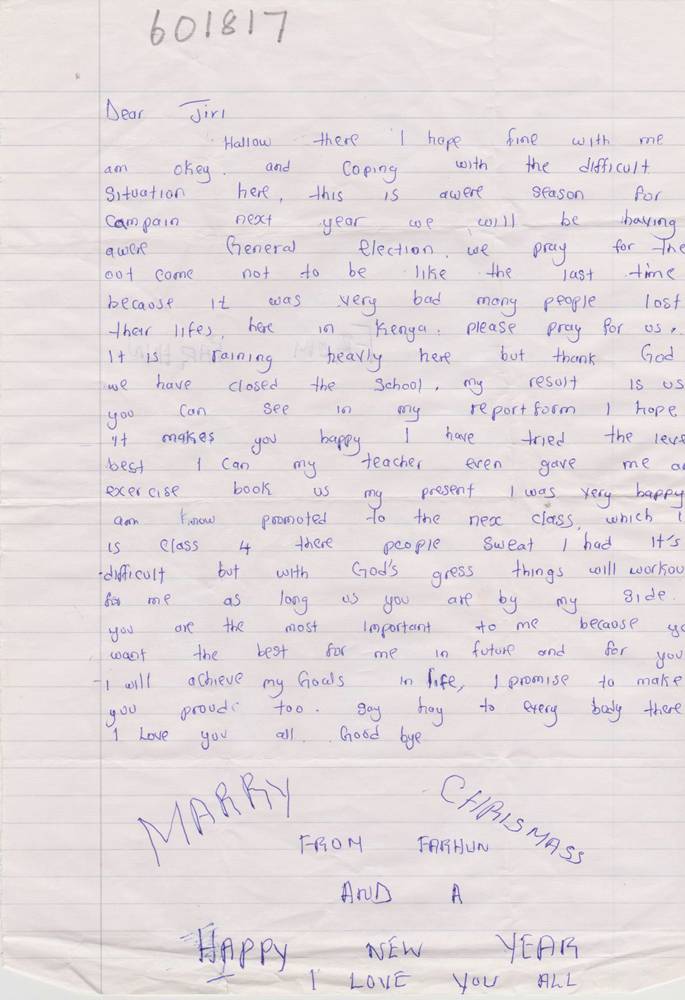 601817
Dear Jiri
Hallow there I hope fine with me
am okey. and Coping with the difficult
Situation here, this is awere season for
Campain next year we will be having
awere General Election. we pray for the
oot come not to be like the last time
because it was very bad many people lost
their lifes, here in Kenya. please pray for us,.
It is raining heavly here but thank God
we have closed the school, my result is us
you can see in my report form I hope
it makes you happy I have tried the leve
best I can my teacher even gave me a
exercise book us my present I was very happy
am know promoted to the nex class, which i
is class 4 there people sweat I had It's
difficult but with God's gress things will workou
for me as long us you are by my side.
you are the most important to me because yo
want the best for me in future and for you
I will achieve my Goals in life, I promise to make
you proud too. say hay to every body there
I Love you all. Good bye
MARRY CHRISMASS
FROM FARHUN
AND A
HAPPY NEW YEAR
I LOVE YOU ALL